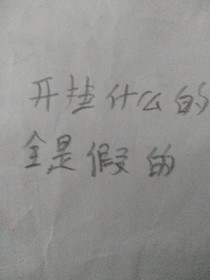 开挂什么的
全是假的